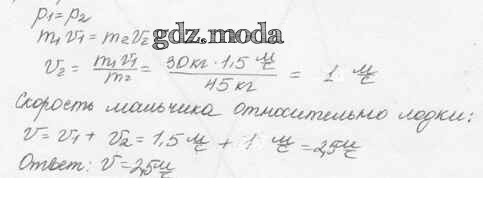 p₁=p₂
m₁v₁=m₂v₂
gdz.moda
v₂ = m₁v₁/m₂ = 30кг·1,5 м/с / 45кг = 1 м/с
Скорость мальчика относительно лодки:
v=v₁+v₂=1,5 м/с + 1 м/с =2,5 м/с
Ответ: v=2,5 м/с